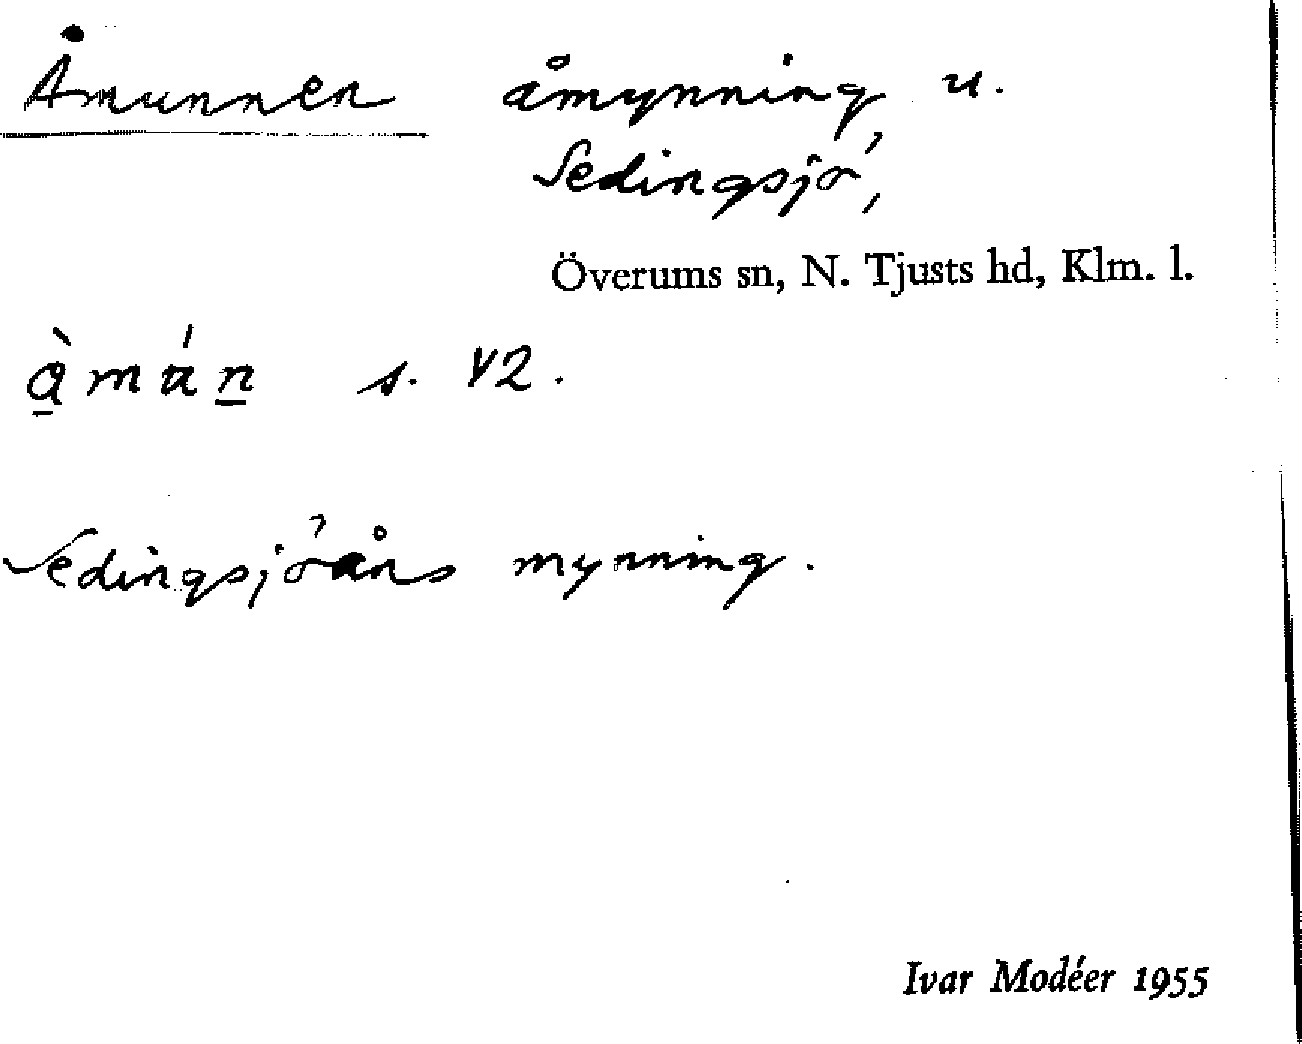 Åmunnen åmynning u.
Sedingsjö,
Överums sn, N. Tjusts hd, Klm. l.
s. V2.
Sedingsjöåns mynning.
Ivar Modéer 1955